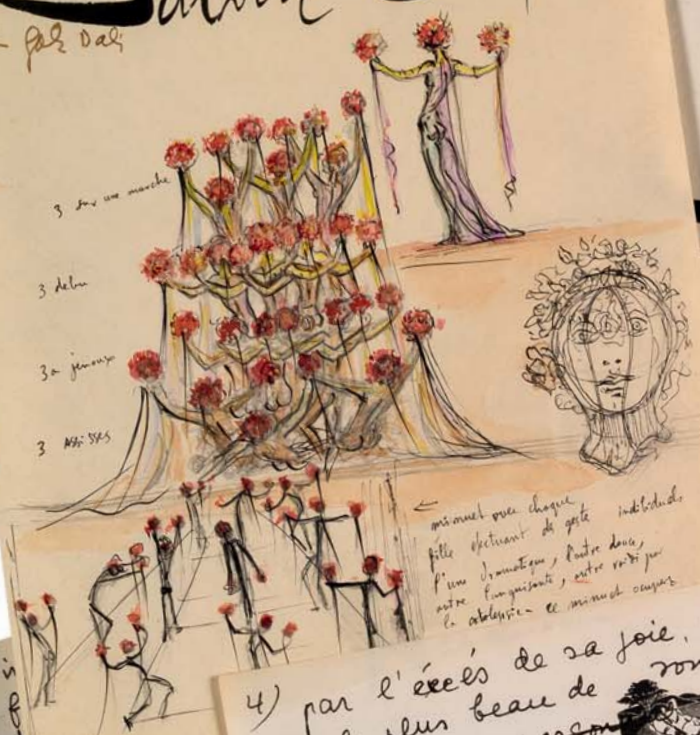 Gala Dali
3 sur une marche
3 debu
3 a jenoux
3 assisses
minuet avec chaque
fille efectuant de geste individuels
l'une dramatique, l'autre douce,
autre languisante, autre raidi par
la catalepsie - ce minuet
4) par l'éxcés de sa joie,
plus beau de son